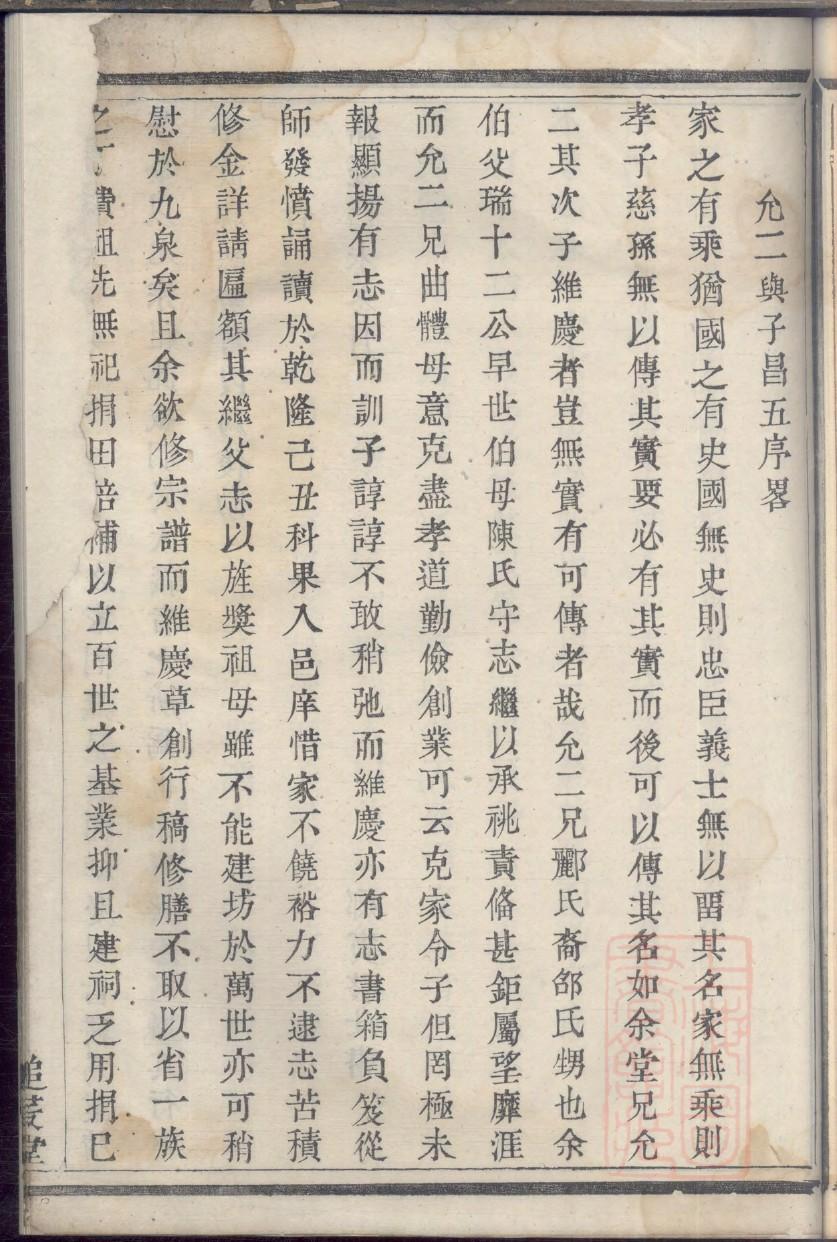 允二與子昌五序畧
家之有乘猶國之有史國無史則忠臣義士無以畱其名家無乘則
孝子慈孫無以傳其實要必有其實而後可以傳其名如余堂兄允
二其次子維慶者豈無實有可傳者哉允二兄酈氏裔邵氏甥也余
伯父瑞十二公早世伯母陳氏守志繼以承祧責俻甚鉅屬望靡涯
而允二兄曲體母意克盡孝道勤儉創業可云克家令子但罔極未
報顯揚有志因而訓子諄諄不敢稍弛而維慶亦有志書箱負笈從
師發憤誦讀於乾隆己丑科果入邑庠惜家不饒裕力不逮志苦積
修金詳請匾額其繼父志以旌獎祖母雖不能建坊於萬世亦可稍
慰於九泉矣且余欲修宗譜而維慶草創行稿修膳不取以省一族
之費祖先無祀捐田培補以立百世之基業抑且建祠乏用捐巳
追菼堂